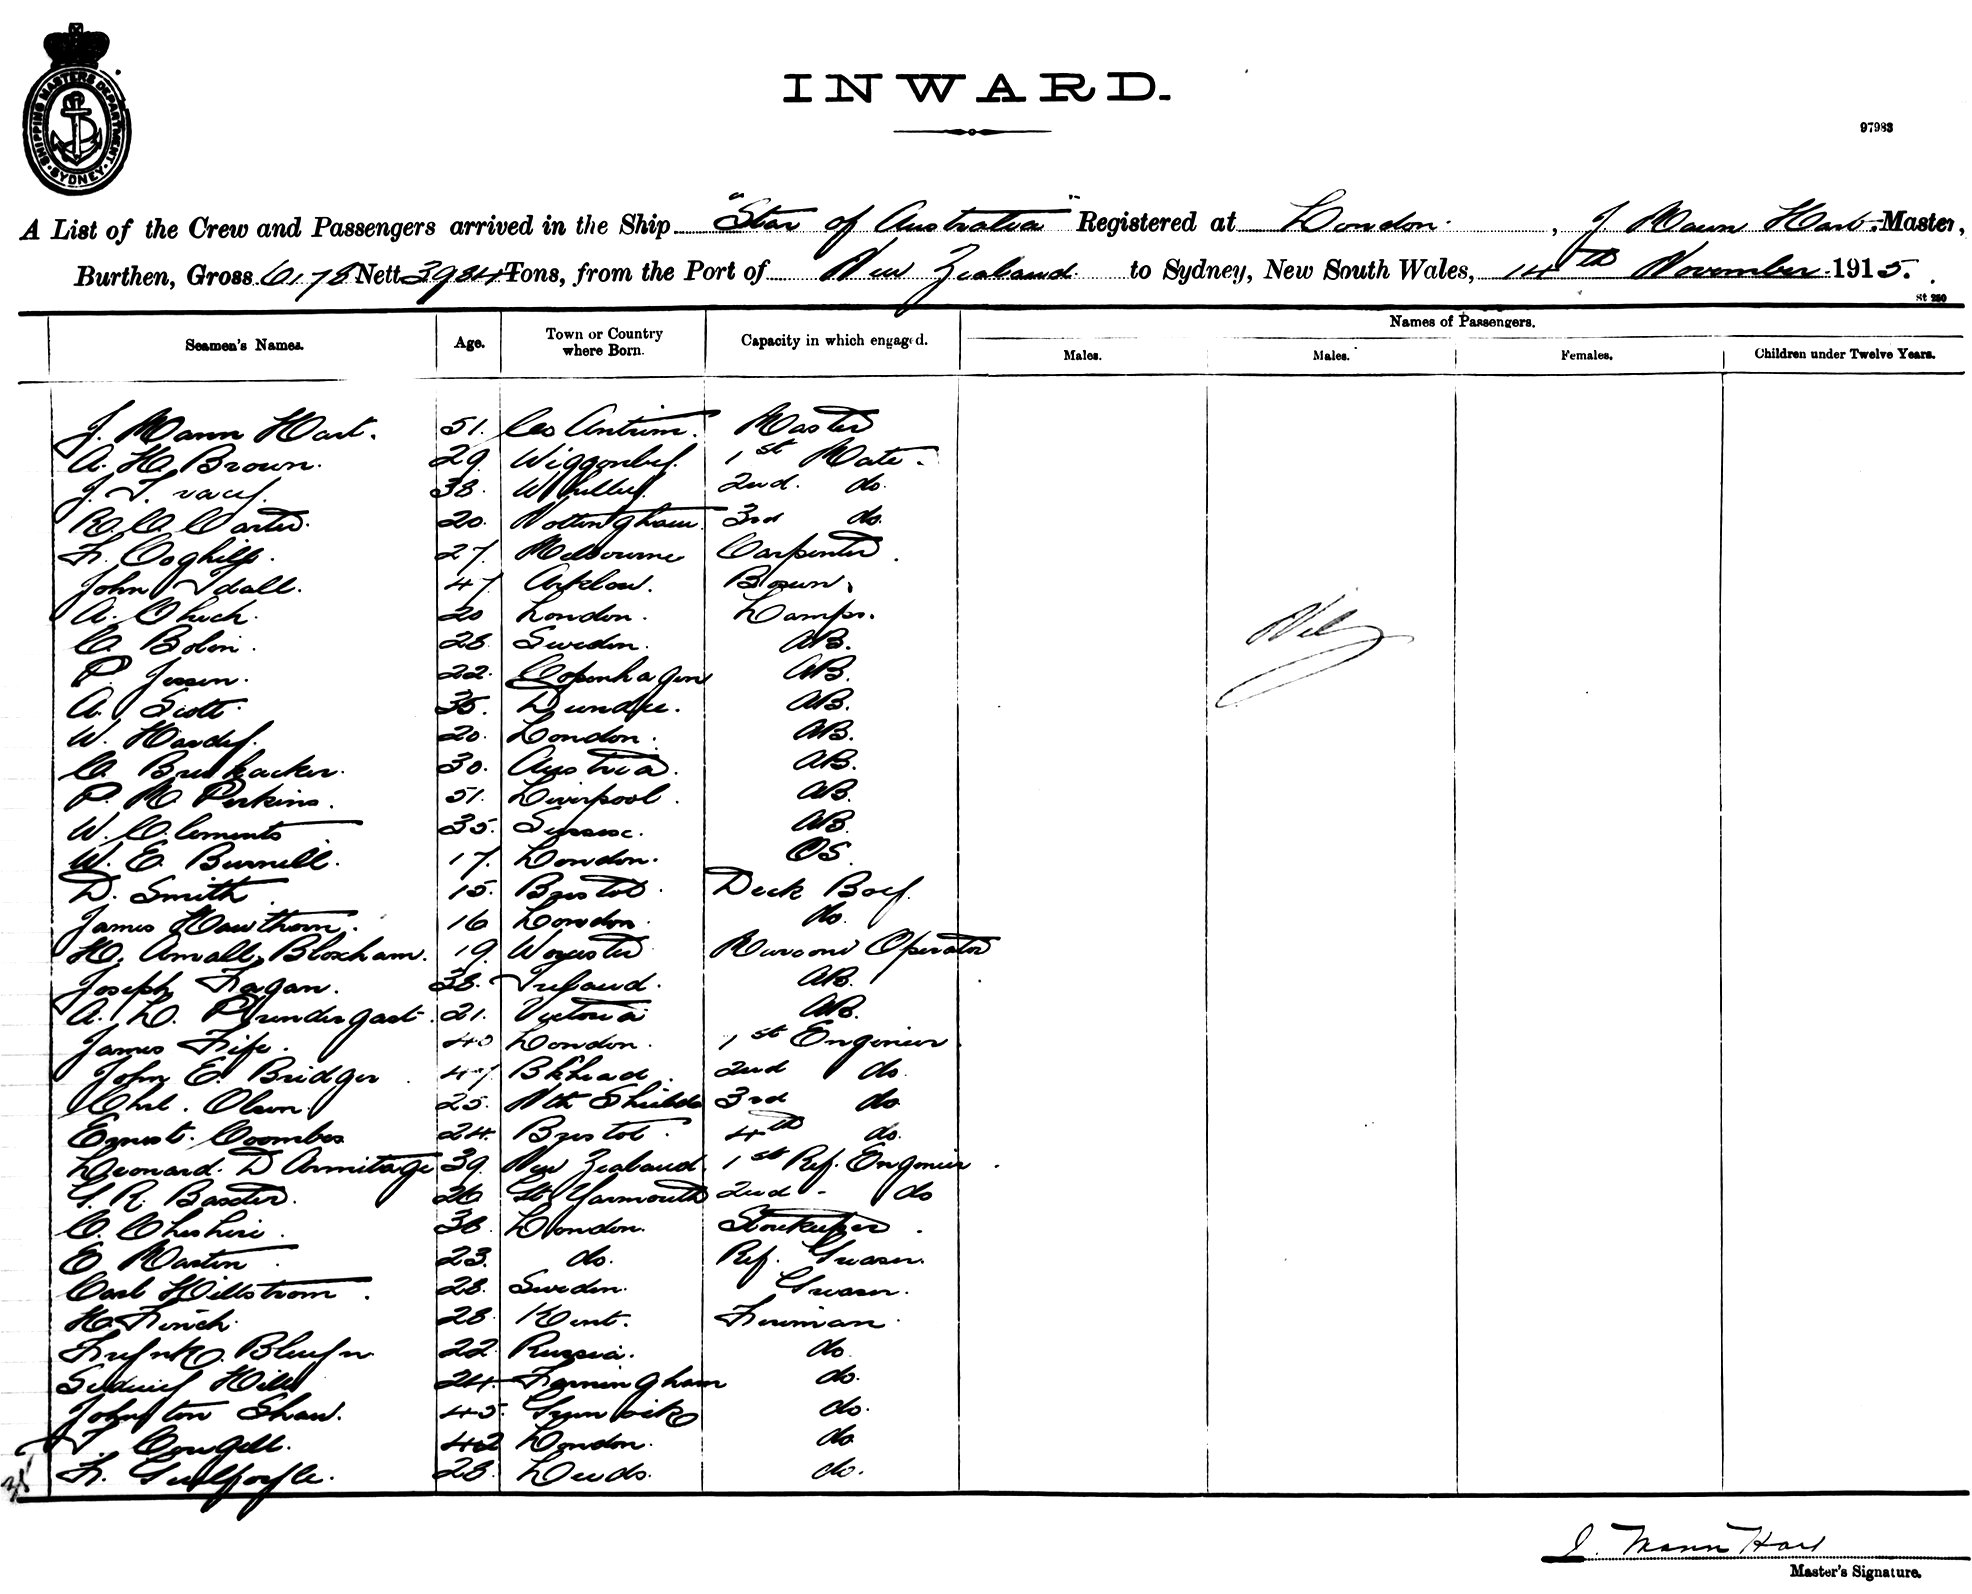 SHIPPING MASTERS DEPARTMENT · SYDNEY ·
INWARD.
97983
A List of the Crew and Passengers arrived in the Ship "Star of Australia" Registered at London. , J Mann Hart Master,
Burthen, Gross 6178 Nett 3984 Tons, from the Port of New Zealand to Sydney, New South Wales, 14th November 1915.
St 250
Seamen's Names. Age. Town or Country where Born. Capacity in which engaged. Names of Passengers.
Males. Males. Females. Children under Twelve Years.
J. Mann Hart. 51. Co Antrim. Master
A. H. Brown. 29. 1st Mate.
J. Tracy. 38. 2nd. do.
R. C. Carter. 20. Nottingham. 3rd do.
F. Coghill. 27. Melbourne Carpenter.
John Udall. 47 Arklow. Bosun.
A. Chick. 20 London. Lamps.
C. Bolin. 28. Sweden. AB.
Nil
P. Jessen. 22. Copenhagen AB.
A. Scott. 35. Dundee. AB.
W. Hardy. 20. London. AB.
30. Austria. AB.
P. M. Perkins. 51. Liverpool. AB.
W. Clements 35. Sussex. AB.
W. E. Burnell. 17. London. OS.
D. Smith 15. Bristol. Deck Boy.
James Hawthorn. 16 London. do.
H. Bloxham. 19. Worcester Marconi Operator
Joseph Fagan. 38. Ireland. AB.
A. L. Prendergast. 21. Victoria AB.
James Fife. 40 London. 1st Engineer
John E. Bridger. 47 B'khead. 2nd do.
Chrl. Olsen. 25. Nth Shields 3rd do.
Ernest. Coombes 24. Bristol. 4th do.
Leonard. D Armitage 39. New Zealand. 1st Ref. Engineer.
G. R. Baxter. 26 Gt Yarmouth 2nd - do
C. Cheshire. 38. London. Storekeeper.
E Martin. 23. do. Ref. Greaser.
Carl Hillstrom. 28. Sweden. Greaser.
H. Finch. 28. Kent. Fireman.
22. Russia. do.
Hills 24. Farningham do.
Johnston Shaw. 45. Greenock do.
T. Cowgill. 42 London. do.
F. Guilfoyle. 28. Leeds. do.
35
J. Mann Hart
Master's Signature.